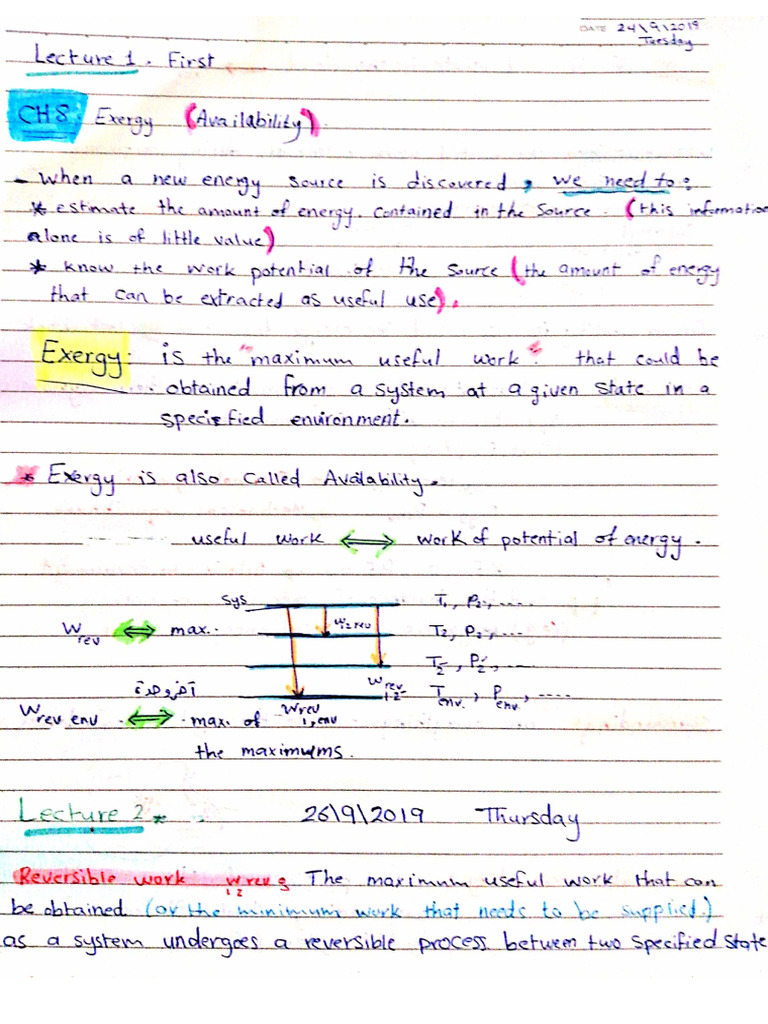 DATE 24\9\2019
Tuesday
Lecture 1. First
CH8: Exergy (Availability).
- When a new energy source is discovered, we need to:
* estimate the amount of energy contained in the source. (this information
alone is of little value)
* know the work potential of the source (the amount of energy
that can be extracted as useful use).
Exergy: is the "maximum useful work" that could be
obtained from a system at a given state in a
specified environment.
* Exergy is also called Availability.
useful work ⟺ work of potential of energy.
sys T1, P2, ....
Wrev ⟺ max. W1/2 rev T2, P2, ...
T2', P2', ...
آخر وحدة Wrev 1-2' Tenv, Penv, ....
Wrev env ⟺ max. of Wrev 1,env
the maximums.
Lecture 2 * 26\9\2019 Thursday
Reversible work Wrev 1-2 : The maximum useful work that can
be obtained (or the minimum work that needs to be supplied.)
as a system undergoes a reversible process between two specified state